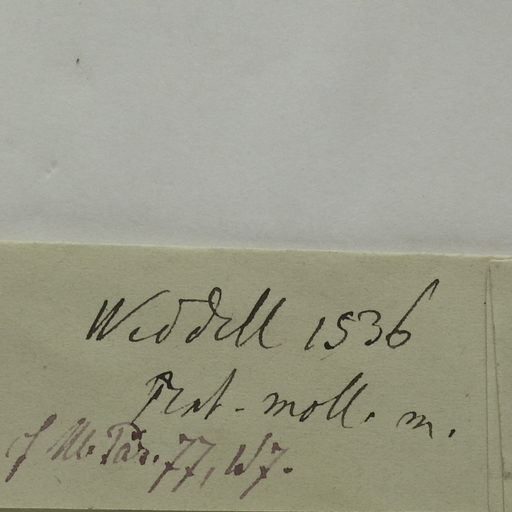 Weddell 1536
Prat-moll. m.
f Mb. Par. 77,